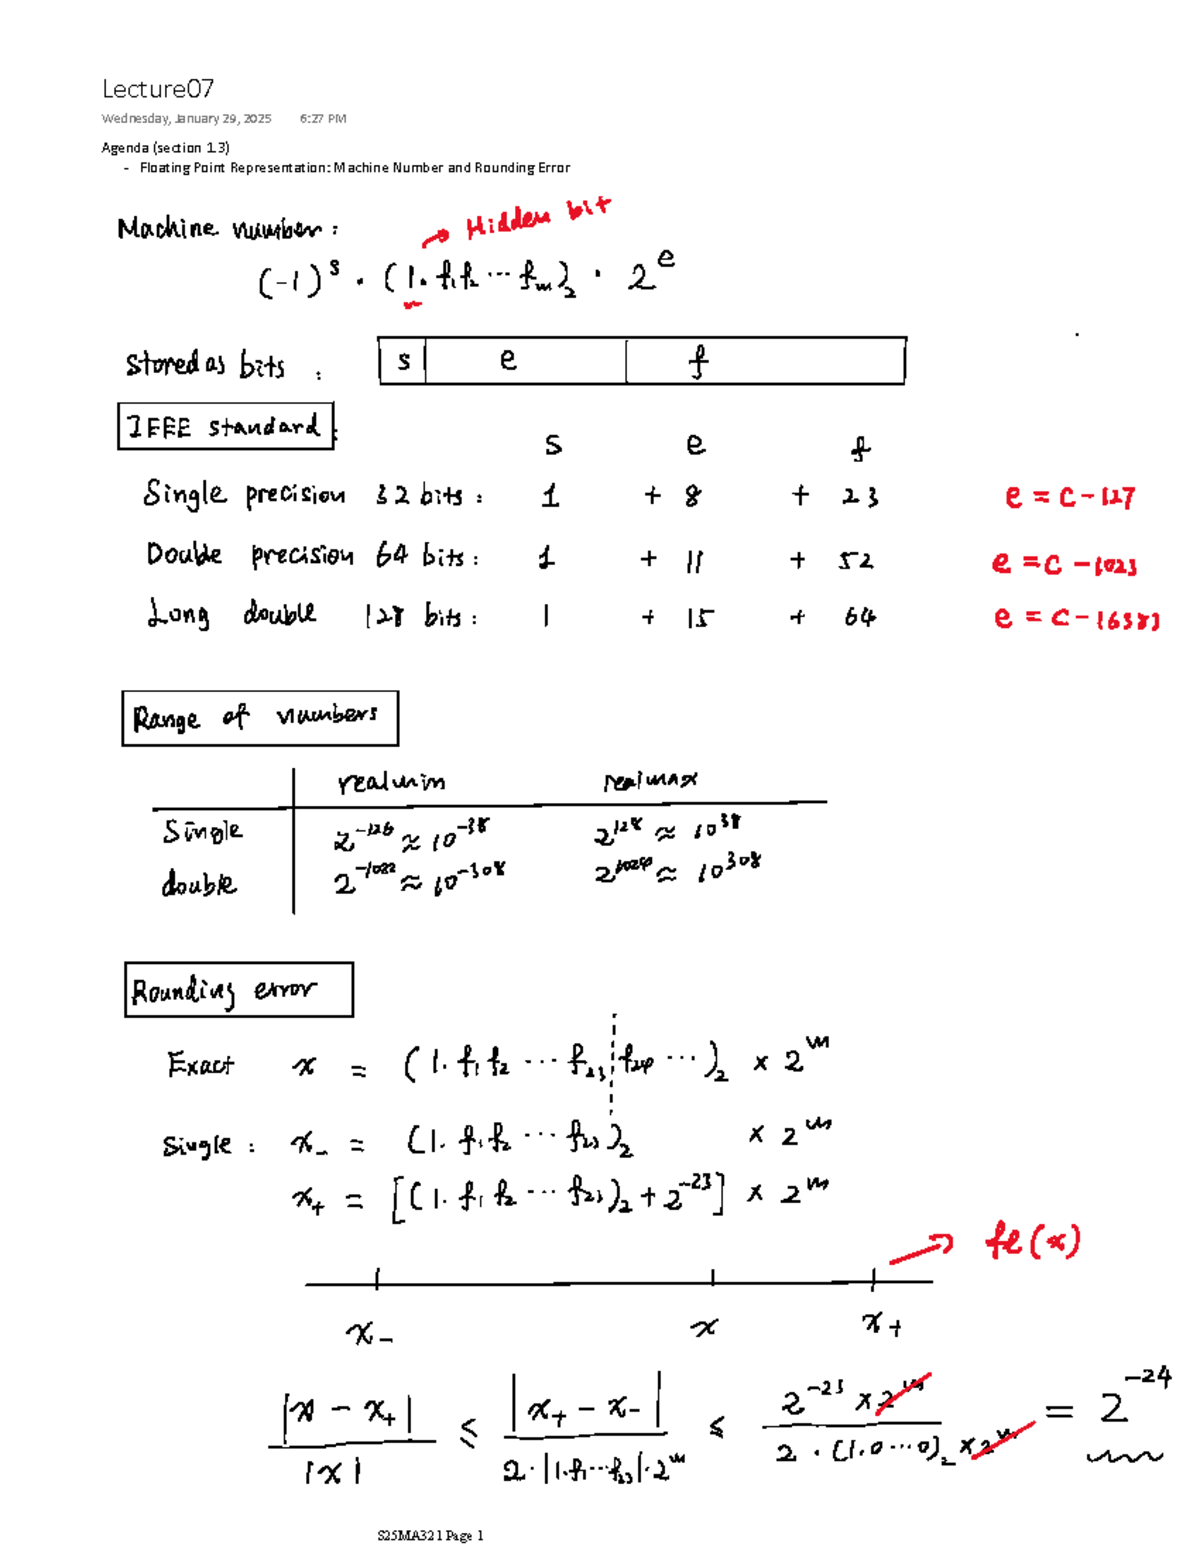 Lecture07
Wednesday, January 29, 2025 6:27 PM
Agenda (section 1.3)
- Floating Point Representation: Machine Number and Rounding Error
Machine number: → Hidden bit
(-1)^s · (1.f₁f₂ ··· fₘ)₂ · 2^e
Stored as bits : s e f
IEEE standard :
s e f
Single precision 32 bits : 1 + 8 + 23 e = c - 127
Double precision 64 bits : 1 + 11 + 52 e = c - 1023
Long double 128 bits : 1 + 15 + 64 e = c - 16383
Range of numbers
realmin realmax
Single 2^-126 ≈ 10^-38 2^128 ≈ 10^38
double 2^-1022 ≈ 10^-308 2^1024 ≈ 10^308
Rounding error
Exact x = (1.f₁f₂ ··· f₂₃ f₂₄ ···)₂ × 2^m
Single : x₋ = (1.f₁f₂ ··· f₂₃)₂ × 2^m
x₊ = [(1.f₁f₂ ··· f₂₃)₂ + 2^-23] × 2^m
→ fl(x)
x₋ x x₊
|x - x₊| / |x| ≤ |x₊ - x₋| / 2·|1.f₁···f₂₃|·2^m ≤ 2^-23 × 2^m / 2·(1.0···0)₂ × 2^m = 2^-24
S25MA321 Page 1